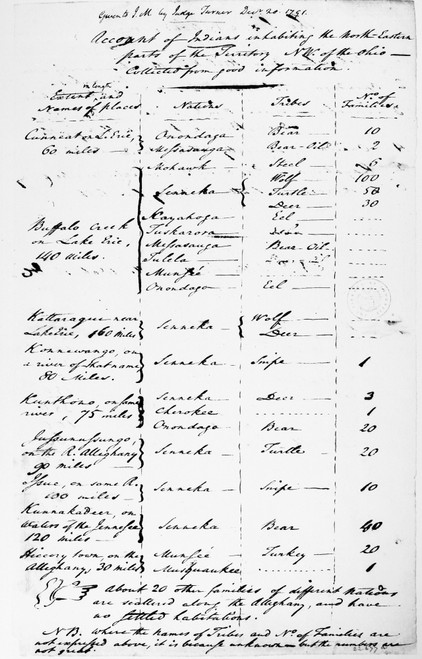 Given to J. M by Judge Turner Decr 20. 1791.
Account of Indians inhabiting the North-Eastern
parts of the Territory N.W. of the Ohio —
Collected from good information.
Extent in lengt and Names of places Nations Tribes No. of Families
Cunneat on L. Erie, Onondaga Bear 10
60 miles — Messasauga Bear-Oil 2
Mohawk Steel 6
Senneka Wolf 100
Turtle 50
Deer 30
Kayahoga Eel
Buffalo Creek Tuskarora
on Lake Erie, Messasauga Bear-Oil
140 Miles. Tulela
Munsié
Onondogo Eel
Kattaraque near Senneka Wolf
Lake Erie, 160 Miles Deer
Konnewango, on
a river of that name Senneka Snipe 1
80 Miles.
Kunthono, on same Senneka Deer 3
river, 75 miles Cherokee 1
Onondago Bear 20
Jussunussungo,
on the R. Alleghany Senneka Turtle 20
90 miles
on same R. Senneka Snipe 10
100 miles —
Kunnakadeer, on
Waters of the Jennesee Senneka Bear 40
120 miles —
Hiccory town, on the Munsié Turkey 20
Alleghany, 30 miles Musquaukee 1
About 20 other families of different nations
are scattered along the Alleghany, and have
no settled habitations.
N.B. where the names of Tribes and No. of Families are
not inserted above, it is because unknown — but the numbers are
not great.